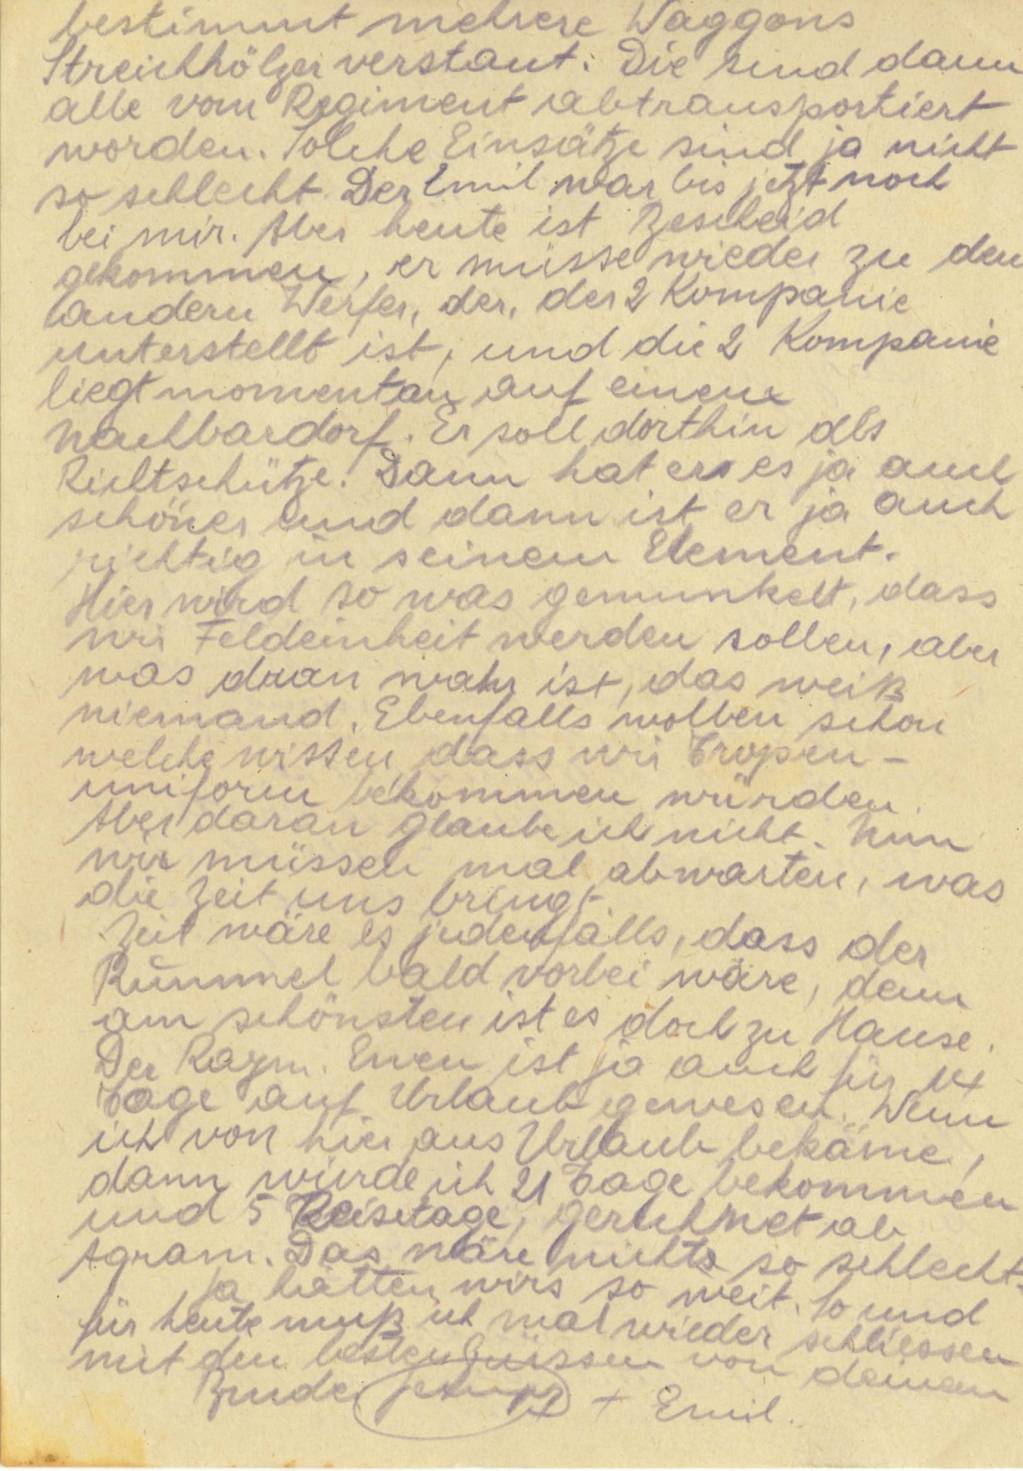 bestimmt mehrere Waggons
Streichhölzer verstaut. Die sind dann
alle vom Regiment abtransportiert
worden. Solche Einsätze sind ja nicht
so schlecht. Der Emil war bis jetzt noch
bei mir. Aber heute ist Bescheid
gekommen, er müsse wieder zu den
andern Werfer, der, der 2 Kompanie
unterstellt ist, und die 2 Kompanie
liegt momentan auf einem
Nachbardorf. Er soll dorthin als
Richtschütze. Dann hat er es ja auch
schöner und dann ist er ja auch
richtig in seinem Element.
Hier wird so was gemunkelt, dass
wir Feldeinheit werden sollen, aber
was dran wahr ist, das weiß
niemand. Ebenfalls wollen schon
welche wissen, dass wir Tropen-
uniform bekommen würden.
Aber daran glaube ich nicht. Nun
wir müssen mal abwarten, was
die Zeit uns bringt.
Zeit wäre es jedenfalls, dass der
Rummel bald vorbei wäre, denn
am schönsten ist es doch zu Hause.
Der ist ja auch für 14
Tage auf Urlaub gewesen. Wenn
ich von hier aus Urlaub bekäme,
dann würde ich 21 Tage bekommen
und 5 Reisetage, gerechnet ab
Agram. Das wäre nichts so schlecht.
Ja hätten wirs so weit. So und
für heute muß ich mal wieder schliessen
mit den besten Grüssen von deinem
Bruder + Emil.